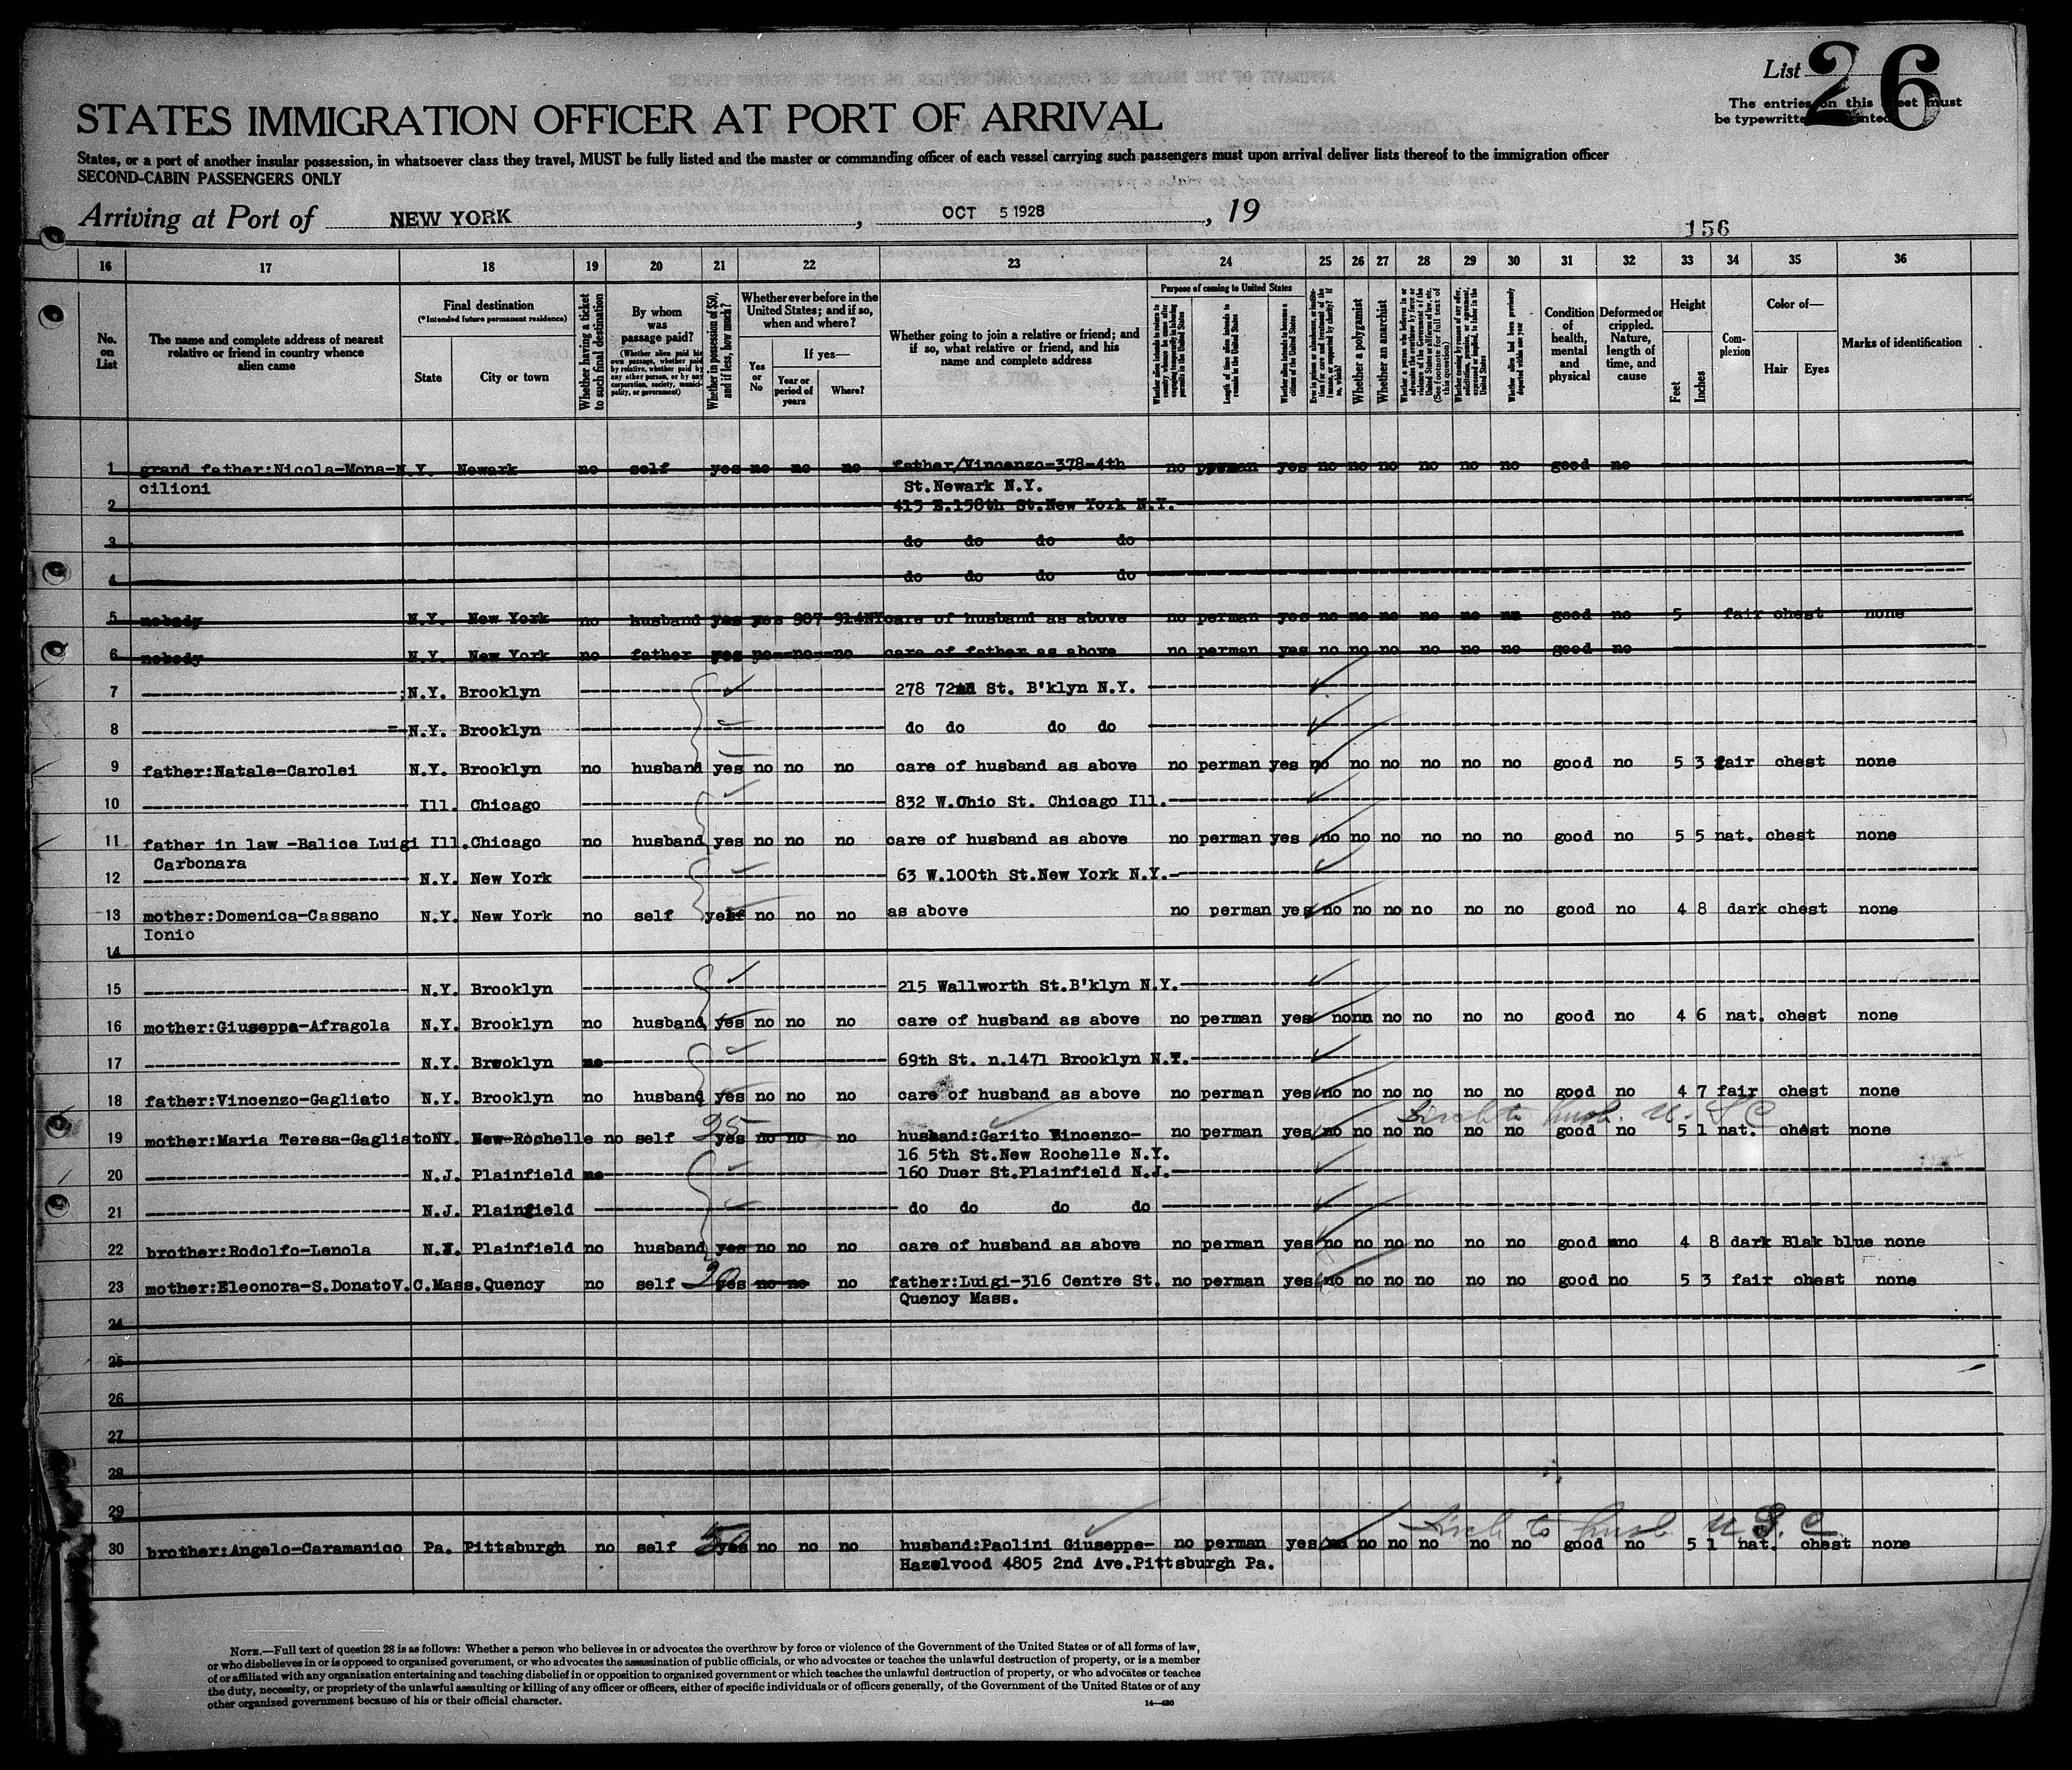 List 26
The entries on this sheet must
be typewritten or printed
STATES IMMIGRATION OFFICER AT PORT OF ARRIVAL
States, or a port of another insular possession, in whatsoever class they travel, MUST be fully listed and the master or commanding officer of each vessel carrying such passengers must upon arrival deliver lists thereof to the immigration officer
SECOND-CABIN PASSENGERS ONLY
Arriving at Port of NEW YORK, OCT 5 1928, 19
156
16 17 18 19 20 21 22 23 24 25 26 27 28 29 30 31 32 33 34 35 36
No. on List
The name and complete address of nearest relative or friend in country whence alien came
Final destination
(*Intended future permanent residence)
State
City or town
Whether having a ticket to such final destination
By whom was passage paid?
(Whether alien paid his own passage, whether paid by relative, whether paid by any other person, or by any corporation, society, municipality, or government)
Whether in possession of $50, and if less, how much?
Whether ever before in the United States; and if so, when and where?
Yes or No
If yes—
Year or period of years
Where?
Whether going to join a relative or friend; and if so, what relative or friend, and his name and complete address
Purpose of coming to United States
Length of time alien intends to remain in the United States
Whether alien intends to become a citizen of the United States
Whether a polygamist
Whether an anarchist
Condition of health, mental and physical
Deformed or crippled. Nature, length of time, and cause
Height
Feet
Inches
Complexion
Color of—
Hair
Eyes
Marks of identification
1 grand father:Nicola-Mona- N.Y. Newark no self yes no no no father/Vincenzo-378-4th no perman yes no no no no no no good no
cilioni St.Newark N.Y.
2 413 E.158th St.New York N.Y.
3 do do do do
4 do do do do
5 nobody N.Y. New York no husband yes yes 907 914NY care of husband as above no perman yes no no no no no no good no 5 fair chest none
6 nobody N.Y. New York no father yes no no no care of father as above no perman yes no no no no no no good no
7 N.Y. Brooklyn 278 72nd St. B'klyn N.Y.
8 N.Y. Brooklyn do do do do
9 father:Natale-Carolei N.Y. Brooklyn no husband yes no no no care of husband as above no perman yes no no no no no no good no 5 3 fair chest none
10 Ill. Chicago 832 W.Ohio St. Chicago Ill.
11 father in law -Balice Luigi Ill.Chicago no husband yes no no no care of husband as above no perman yes no no no no no no good no 5 5 nat. chest none
Carbonara
12 N.Y. New York 63 W.100th St.New York N.Y.
13 mother:Domenica-Cassano N.Y. New York no self yes no no no as above no perman yes no no no no no no good no 4 8 dark chest none
Ionio
14
15 N.Y. Brooklyn 215 Wallworth St.B'klyn N.Y.
16 mother:Giuseppa-Afragola N.Y. Brooklyn no husband yes no no no care of husband as above no perman yes nonn no no no no good no 4 6 nat. chest none
17 N.Y. Brooklyn no 69th St. n.1471 Brooklyn N.Y.
18 father:Vincenzo-Gagliato N.Y. Brooklyn no husband yes no no no care of husband as above no perman yes no no no no no no good no 4 7 fair chest none
to husb. U.S.C
19 mother:Maria Teresa-Gagliato NY. New-Rochelle no self 25 yes no no no husband:Garito Vincenzo- no perman yes no no no no no no good no 5 1 nat. chest none
16 5th St.New Rochelle N.Y.
20 N.J. Plainfield no 160 Duer St.Plainfield N.J.
21 N.J. Plainfield do do do do
22 brother:Rodolfo-Lenola N.J. Plainfield no husband yes no no no care of husband as above no perman yes no no no no no no good no 4 8 dark Blak blue none
23 mother:Eleonora-S.DonatoV.C.Mass.Quency no self 20 yes no no no father:Luigi-316 Centre St. no perman yes no no no no no no good no 5 3 fair chest none
Quency Mass.
24
25
26
27
28
29
to husb U.S.C
30 brother:Angelo-Caramanico Pa. Pittsburgh no self 50 yes no no no husband:Paolini Giuseppe- no perman yes no no no no no no good no 5 1 nat. chest none
Hazelvood 4805 2nd Ave.Pittsburgh Pa.
NOTE.—Full text of question 28 is as follows: Whether a person who believes in or advocates the overthrow by force or violence of the Government of the United States or of all forms of law,
or who disbelieves in or is opposed to organized government, or who advocates the assassination of public officials, or who advocates or teaches the unlawful destruction of property, or is a member
of or affiliated with any organization entertaining and teaching disbelief in or opposition to organized government or which teaches the unlawful destruction of property, or who advocates or teaches
the duty, necessity, or propriety of the unlawful assaulting or killing of any officer or officers, either of specific individuals or of officers generally, of the Government of the United States or of any
other organized government because of his or their official character.
14—430